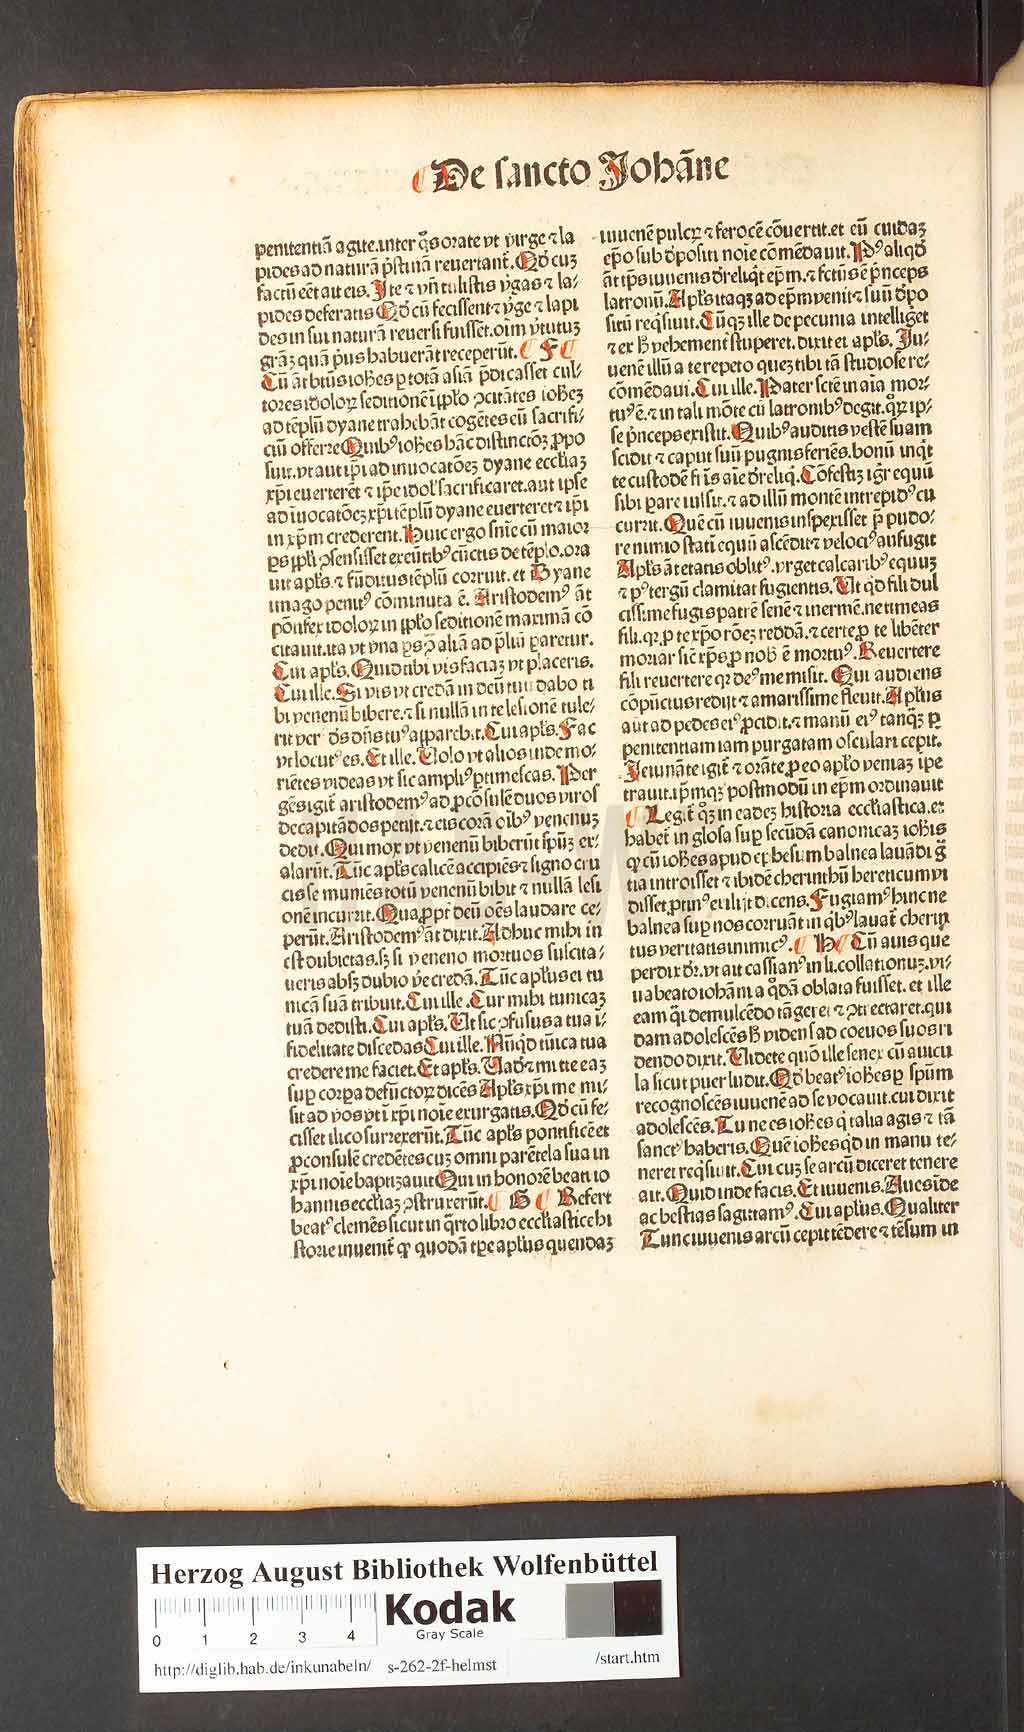 De sancto Johāne
penitentiā agite.inter q̄s orate vt virge ⁊ la
pides ad naturā p̄stinā reuertant̄. Qd̓ cuz
factū eēt ait eis. Ite ⁊ vn̄ tulistis v̓gas ⁊ la⸗
pides deferatis Qd̓ cū fecissent ⁊ v̓ge ⁊ lapi
des in sui naturā reuersi fuissēt. oīm v̓tutuꝫ
grāꝫ quā p̓us habuerāt receperūt. F
Cū āt btūs ioh̓es ꝑ totā asiā p̄dicasset cul⸗
tores idoloꝝ seditionē ī pplo ꝯcitātes ioh̓eꝫ
ad tēplū dyane trahebāt cogētes eū sacrifi⸗
ciū offerre Quibꝰ ioh̓es hāc distinctōeꝫ ꝓpo
suit. vt aut ip̄i ad inuocatōeꝫ dyane eccl̓iaꝫ
xp̄i euerterēt ⁊ ip̄e idol̓ sacrificaret. aut ipse
ad īuocatōeꝫ xp̄i tēplū dyane euerteret ⁊ ip̄i
in xp̄m crederent. Huic ergo sn̄ie cū maior
ꝑs ppli ꝯsensisset exeūtibꝰ cūctis de tēplo. ora
uit apl̓s. ⁊ fūditus tēplū corruit. et Dyane
imago penitꝰ cōminuta ē. Aristodemꝰ āt
pōtifex idoloꝝ in pplo seditionē maximā cō
citauit. ita vt vna ꝑs ꝯ̄ aliā ad p̄liū ꝑaretur.
Cui apl̓s. Quid tibi vis faciaꝫ vt placeris.
Cui ille. Si vis vt credā in deū tuū dabo ti
bi venenū bibere. ⁊ si nullā in te lesionē tule⸗
rit ver᷒ ds̄ dn̄s tuꝰ apparebit. Cui apl̓s. Fac
vt locutꝰ es. Et ille. Uolo vt alios inde mo⸗
riētes videas vt sic ampliꝰ ꝑtimescas. Per
gēs igit̄ aristodemꝰ ad ꝓcōsulē duos viros
decapitādos petijt. ⁊ eis corā oībꝰ venenuꝫ
dedit. Qui mox vt venenū biberūt spūꝫ ex⸗
alarūt. Tūc apl̓s calicē accipiēs ⁊ signo cru
cis se muniēs totū venenū bibit ⁊ nullā lesi
onē incurrit. Quaꝓpt̓ deū oēs laudare ce⸗
perūt. Aristodemꝰ āt dixit. Adhuc mihi in
est dubietas. sꝫ si veneno mortuos suscita⸗
ueris absqꝫ dubio v̓e credā. Tūc apl̓us ei tu
nicā suā tribuit. Cui ille. Cur mihi tunicaꝫ
tuā dedisti. Cui apl̓s. Ut sic ꝯfusus a tua ī⸗
fidelitate discedas Cui ille. Nūqd̓ tūica tua
credere me faciet. Et apl̓s. Uad̓ ⁊ mitte eaꝫ
suꝑ corꝑa defūctoꝝ dicēs Apl̓s xp̄i me mi⸗
sit ad vos vt ī xp̄i noīe exurgatis. Qd̓ cū fe⸗
cisset ilico surrexerūt. Tūc apl̓s pontificē et
ꝓconsulē credētes cuꝫ omni parētela sua in
xp̄i noīe baptizauit Qui in honorē beati io
hannis eccl̓iaꝫ ꝯstruxerūt. G Refert
beatꝰ clemēs sicut in q̄rto libro eccl̓iastice hi
storie inuenit̄ ꝙ quodā tp̄e apl̓us quendaꝫ
iuuenē pulcꝝ ⁊ ferocē cōuertit. et eū cuidaꝫ
ep̄o sub d̓positi noīe cōmēdauit. Pꝰ aliqd̓
āt tp̄s iuuenis d̓reliqt̓ ep̄m. ⁊ fctūs ē p̄nceps
latronū. Apl̓s itaqꝫ ad ep̄m venit ⁊ suū d̓po
sitū reqsiuit. Cūqꝫ ille de pecunia intelliget
⁊ ex h̓ vehement̓ stuperet. dixit ei apl̓s. Ju⸗
uenē illū a te repeto queꝫ tibi tā studiose re⸗
cōmēdaui. Cui ille. Pater scte in aīa mor⸗
tuꝰ ē. ⁊ in tali mōte cū latronibꝰ degit. q̄ꝝ ip⸗
se p̄nceps existit. Quibꝰ auditis vestē suam
scidit ⁊ caput suū pugnis feriēs. bonū inqt̓
te custodē fr̄is aīe d̓reliq. Cōfestiꝫ igr̄ equū
sibi ꝑare iussit. ⁊ ad illū montē intrepidꝰ cu
currit. Quē cū iuuenis inspexisset p̄ pudo⸗
re nimio statī equū ascēdit ⁊ velociꝰ aufugit
Apl̓s āt etatis oblitꝰ. vrget calcaribꝰ equuꝫ
⁊ pꝰ tergū clamitat fugientis. Ut qd̓ fili dul
cissime fugis patrē senē ⁊ inermē. ne timeas
fili. qꝝ ꝓ te xp̄o rōeꝫ reddā. ⁊ certe ꝓ te libēter
moriar sic̄ xp̄s ꝓ nob̓ ē mortuꝰ. Reuertere
fili reuertere qꝝ deꝰ me misit. Qui audiens
cōpūctus redijt ⁊ amarissime fleuit. Apl̓us
aūt ad pedes eiꝰ ꝓcidit. ⁊ manū eiꝰ tanqꝫ ꝑ
penitentiam iam purgatam osculari cepit.
Jeiunāte igit̄ ⁊ orāte ꝓ eo apl̓o veniaꝫ īpe
trauit. ip̄mqꝫ postmodū in ep̄m ordinauit
Legit̄ qꝫ in eadeꝫ historia eccl̓iastica. et
habet̄ in glosa suꝑ secūdā canonicaꝫ ioh̓is
ꝙ cū ioh̓es apud ephesum balnea lauādi g̓
tia introisset ⁊ ibidē cherinthū hereticum vi
disset ꝓtinꝰ exilijt dicens. Fugiamꝰ hinc ne
balnea suꝑ nos corruāt in qbꝰ lauat̄ cherin
tus veritatis inimicꝰ. H Cū auis que
perdix dr̄. vt ait cassianꝰ in li. collationuꝫ. vi⸗
ua beato iohāni a qdā oblata fuisset. et ille
eam qi demulcēdo tāgeret ⁊ ꝯtrectaret. qui
dam adolescēs h̓ videns ad coeuos suos ri
dendo dixit. Uidete quō ille senex cū auicu
la sicut puer ludit. Qd̓ beatꝰ ioh̓es ꝑ spūm
recognoscēs iuuenē ad se vocauit. cui dixit
adolescēs. Tu ne es ioh̓es q talia agis ⁊ tā
sanctꝰ haberis. Quē ioh̓es qd̓ in manu te⸗
neret reqsiuit. Cui cuꝫ se arcū diceret tenere
ait. Quid inde facis. Et iuuenis. Aues īde
ac bestias sagittamꝰ. Cui apl̓us. Qualiter
Tunc iuuenis arcū cepit tēdere ⁊ tēsum in
Herzog August Bibliothek Wolfenbüttel
0 1 2 3 4
Kodak
Gray Scale
http://diglib.hab.de/inkunabeln/ s-262-2f-helmst /start.htm